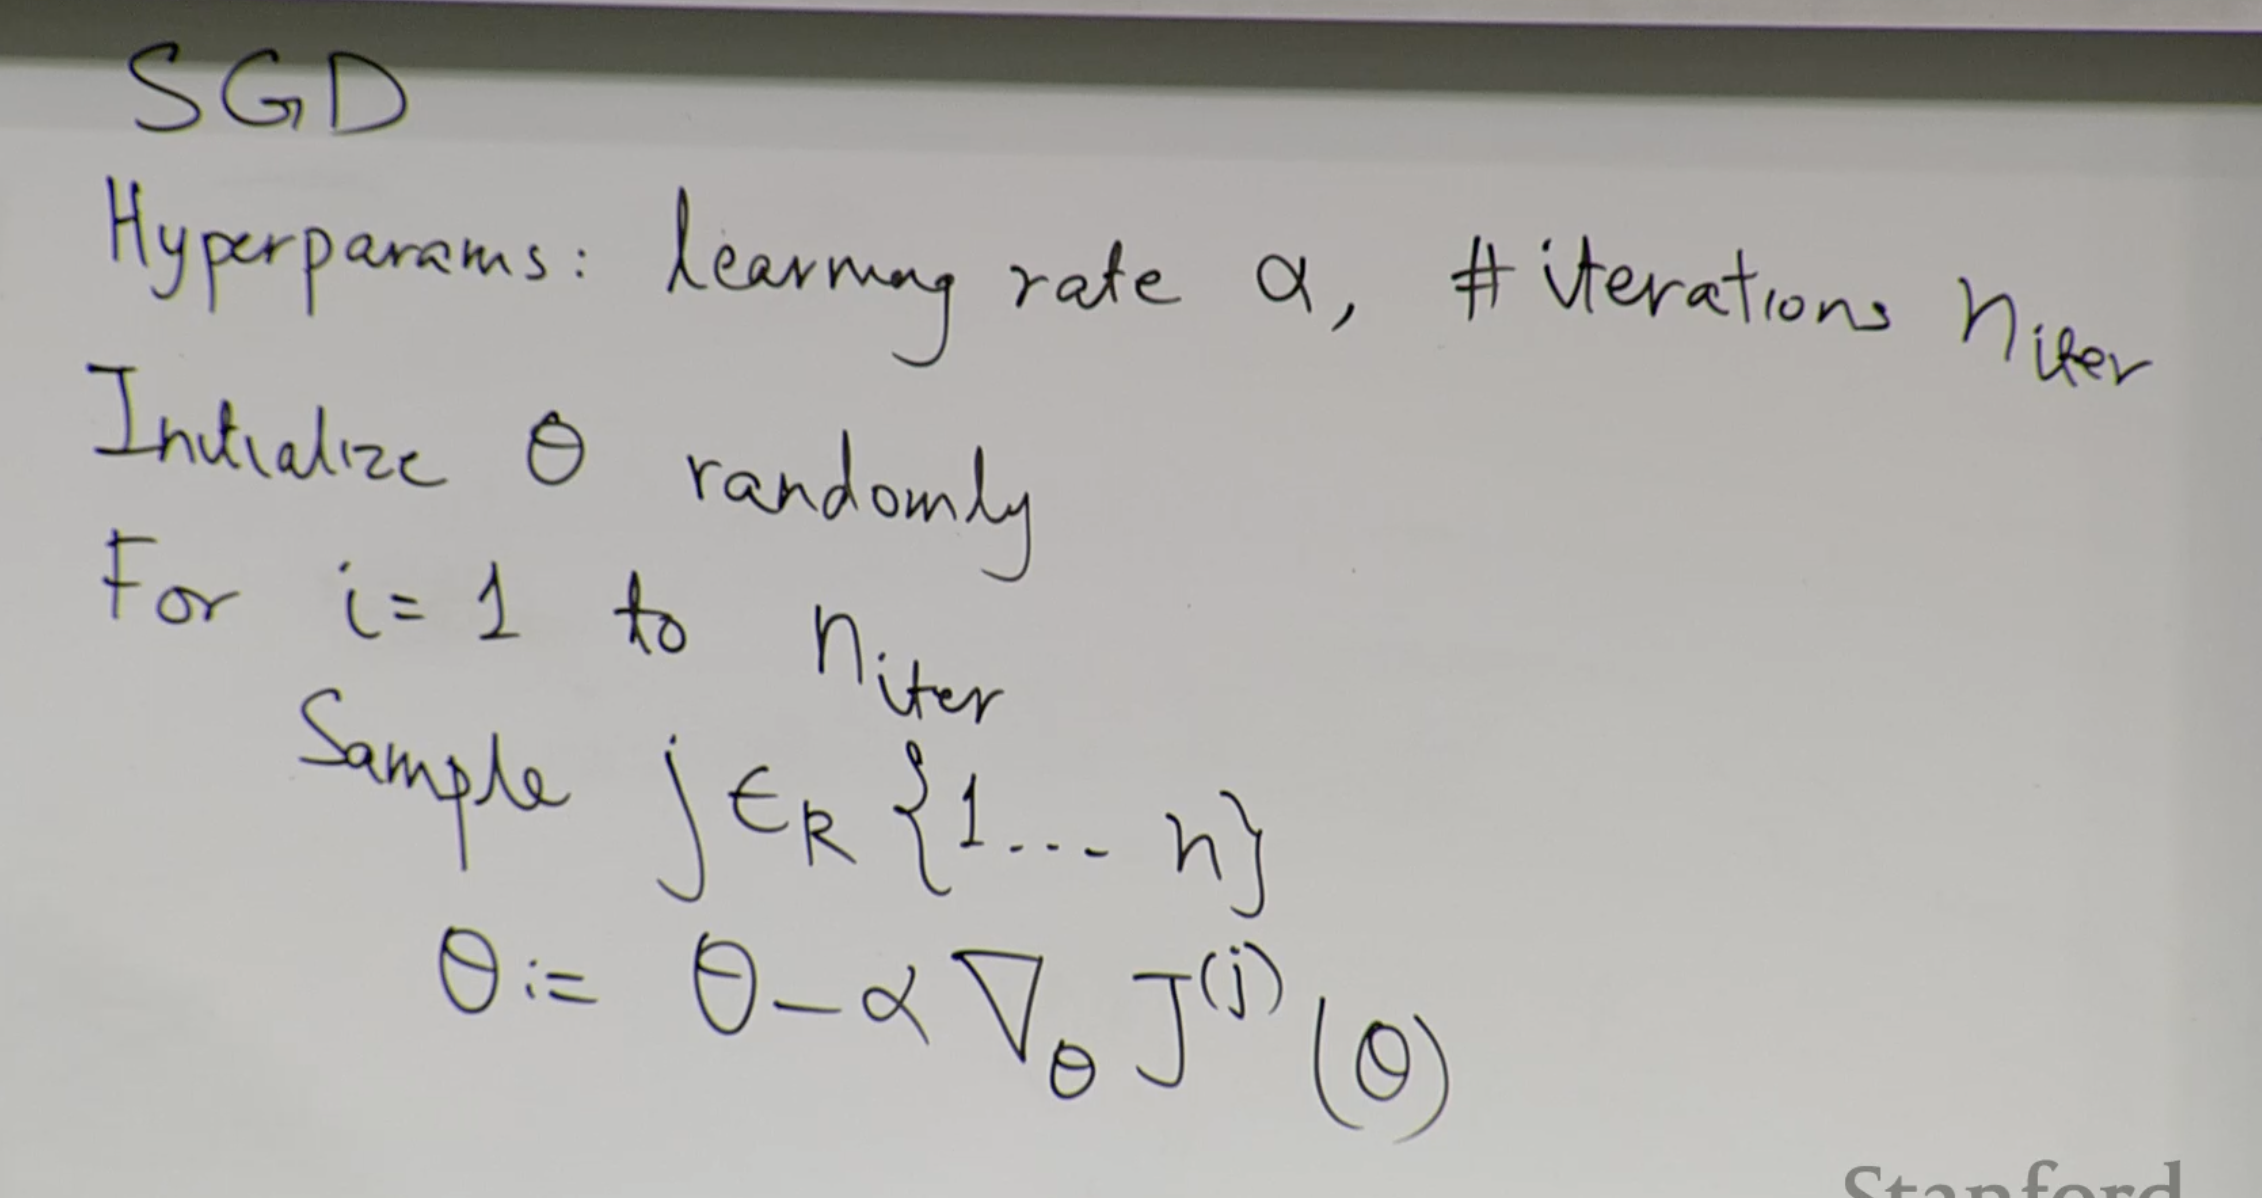 SGD
Hyperparams: learning rate α, # iterations n_iter
Initialize θ randomly
For i = 1 to n_iter
Sample j ∈_R {1... n}
θ := θ - α ∇_θ J^(j) (θ)
Stanford